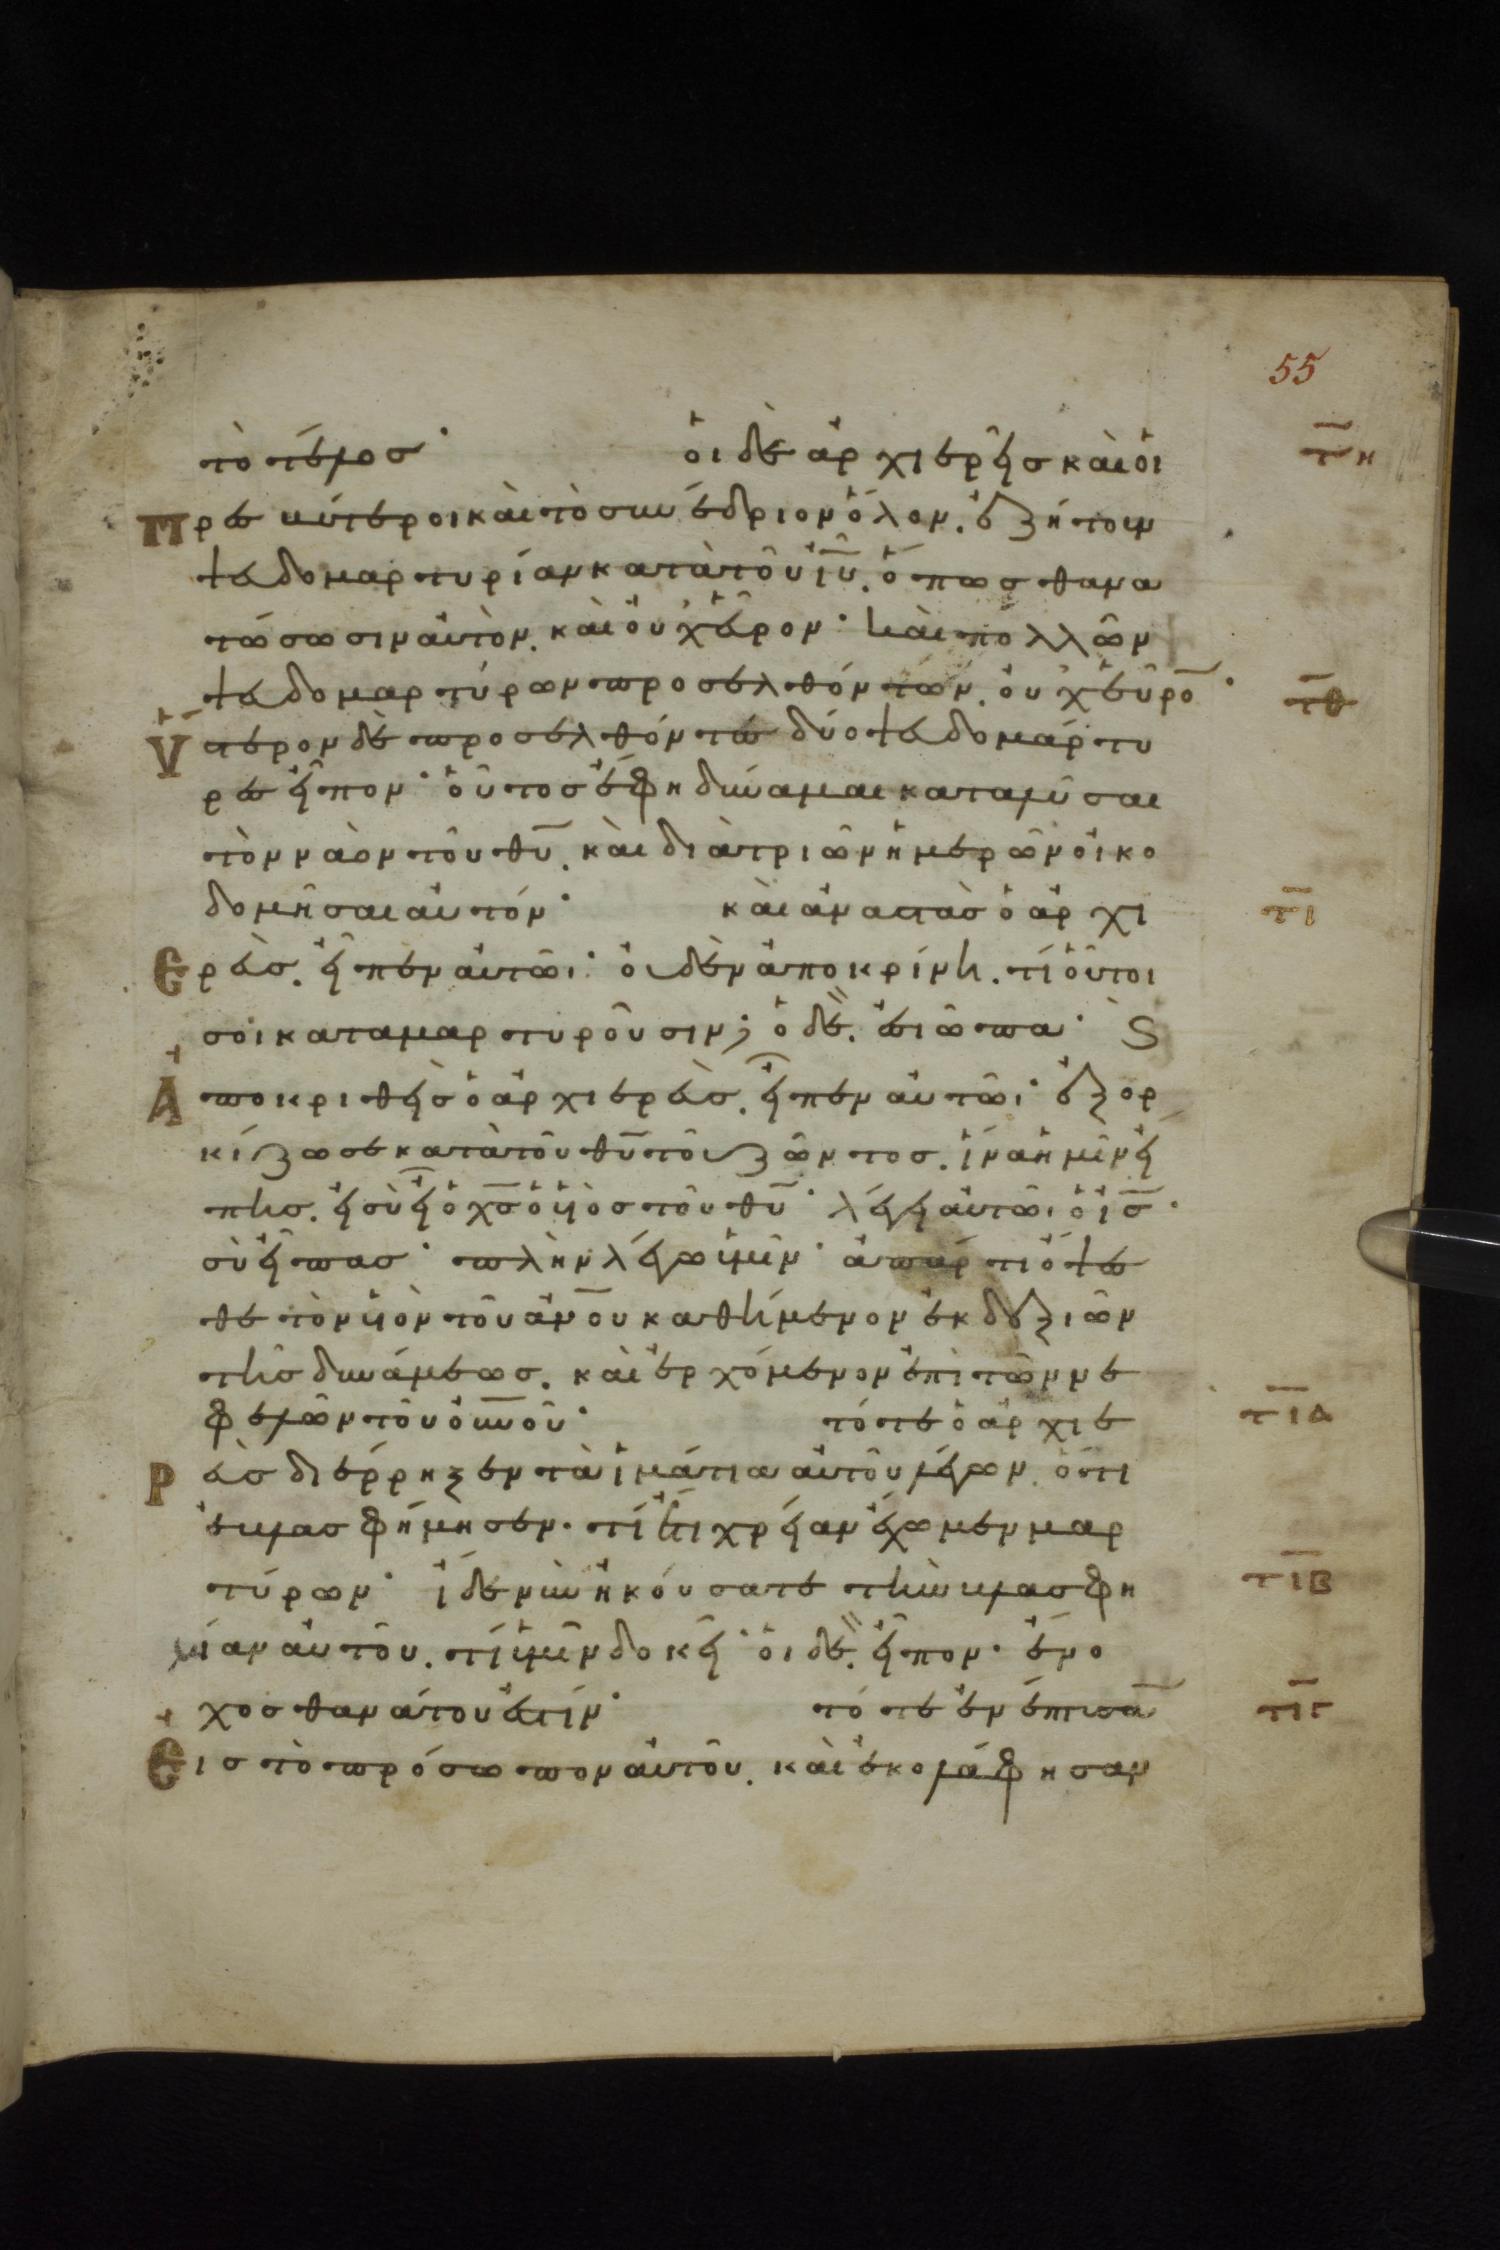 55
τὸ τέλοσ· οἱ δὲ ἀρχιερεῖσ καὶ οἱ τη
Πρεσβύτεροι καὶ τὸ συνέδριον ὅλον. ἐζήτουν
ψευδομαρτυρίαν κατὰ τοῦ ἰῦ. ὅπωσ θανα
τώσωσιν αὐτὸν. καὶ οὐχ εὗρον· καὶ πολλῶν
ψευδομαρτύρων προσελθόντων. οὐχ εὗρο̄· τθ
Ὕστερον δὲ προσελθόντεσ δύο ψευδομάρτυ
ρεσ εἶπον· οὗτοσ ἔφη δύναμαι καταλῦσαι
τὸν ναὸν τοῦ θῦ. καὶ διὰ τριῶν ἡμερῶν οἰκο
δομῆσαι αὐτόν· καὶ ἀναστὰσ ὁ ἀρχι τι
Ερεὺσ. εἶπεν αὐτῶι· οὐδὲν ἀποκρίνη. τί οὗτοι
σοὶ καταμαρτυροῦσιν; ὁ δὲ. ἐσιώπα· Ϛ
Ἀποκριθεὶσ ὁ ἀρχιερεὺσ. εἶπεν αὐτῶι· ἐξορ
κίζω σε κατὰ τοῦ θῦ τοῦ ζῶντοσ. ἵνα ἡμῖν εἴ
πησ. εἰ σὺ εἶ ὁ χσ ὁ ὑιὸσ τοῦ θῦ· λέγει αὐτῶι ὁ ἰσ·
σὺ εἶπασ· πλὴν λέγω ὑμῖν· ἀπάρτι ὄψεσ
θε τὸν ὑιὸν τοῦ ἀνου καθήμενον ἐκ δεξιῶν
τῆσ δυνάμεωσ. καὶ ἐρχόμενον ἐπὶ τῶν νε
φελῶν τοῦ οὐνοῦ· τότε ὁ ἀρχιε τια
Ρεὺσ διέρρηξεν τὰ ἱμάτια αὐτοῦ λέγων. ὅτι
ἐβλασφήμησεν. τί ἔτι χρείαν ἔχωμεν μαρ
τύρων· ἴδε νῦν ἠκούσατε τὴν βλασφη τιβ
μίαν αὐτοῦ. τί ὑμῖν δοκεῖ· οἱ δὲ. εἶπον. ἔνο
χοσ θανάτου ἐστίν· τότε ἐνέπτυσα̅ τιγ
Εἰσ τὸ πρόσωπον αὐτοῦ. καὶ ἐκολάφησαν